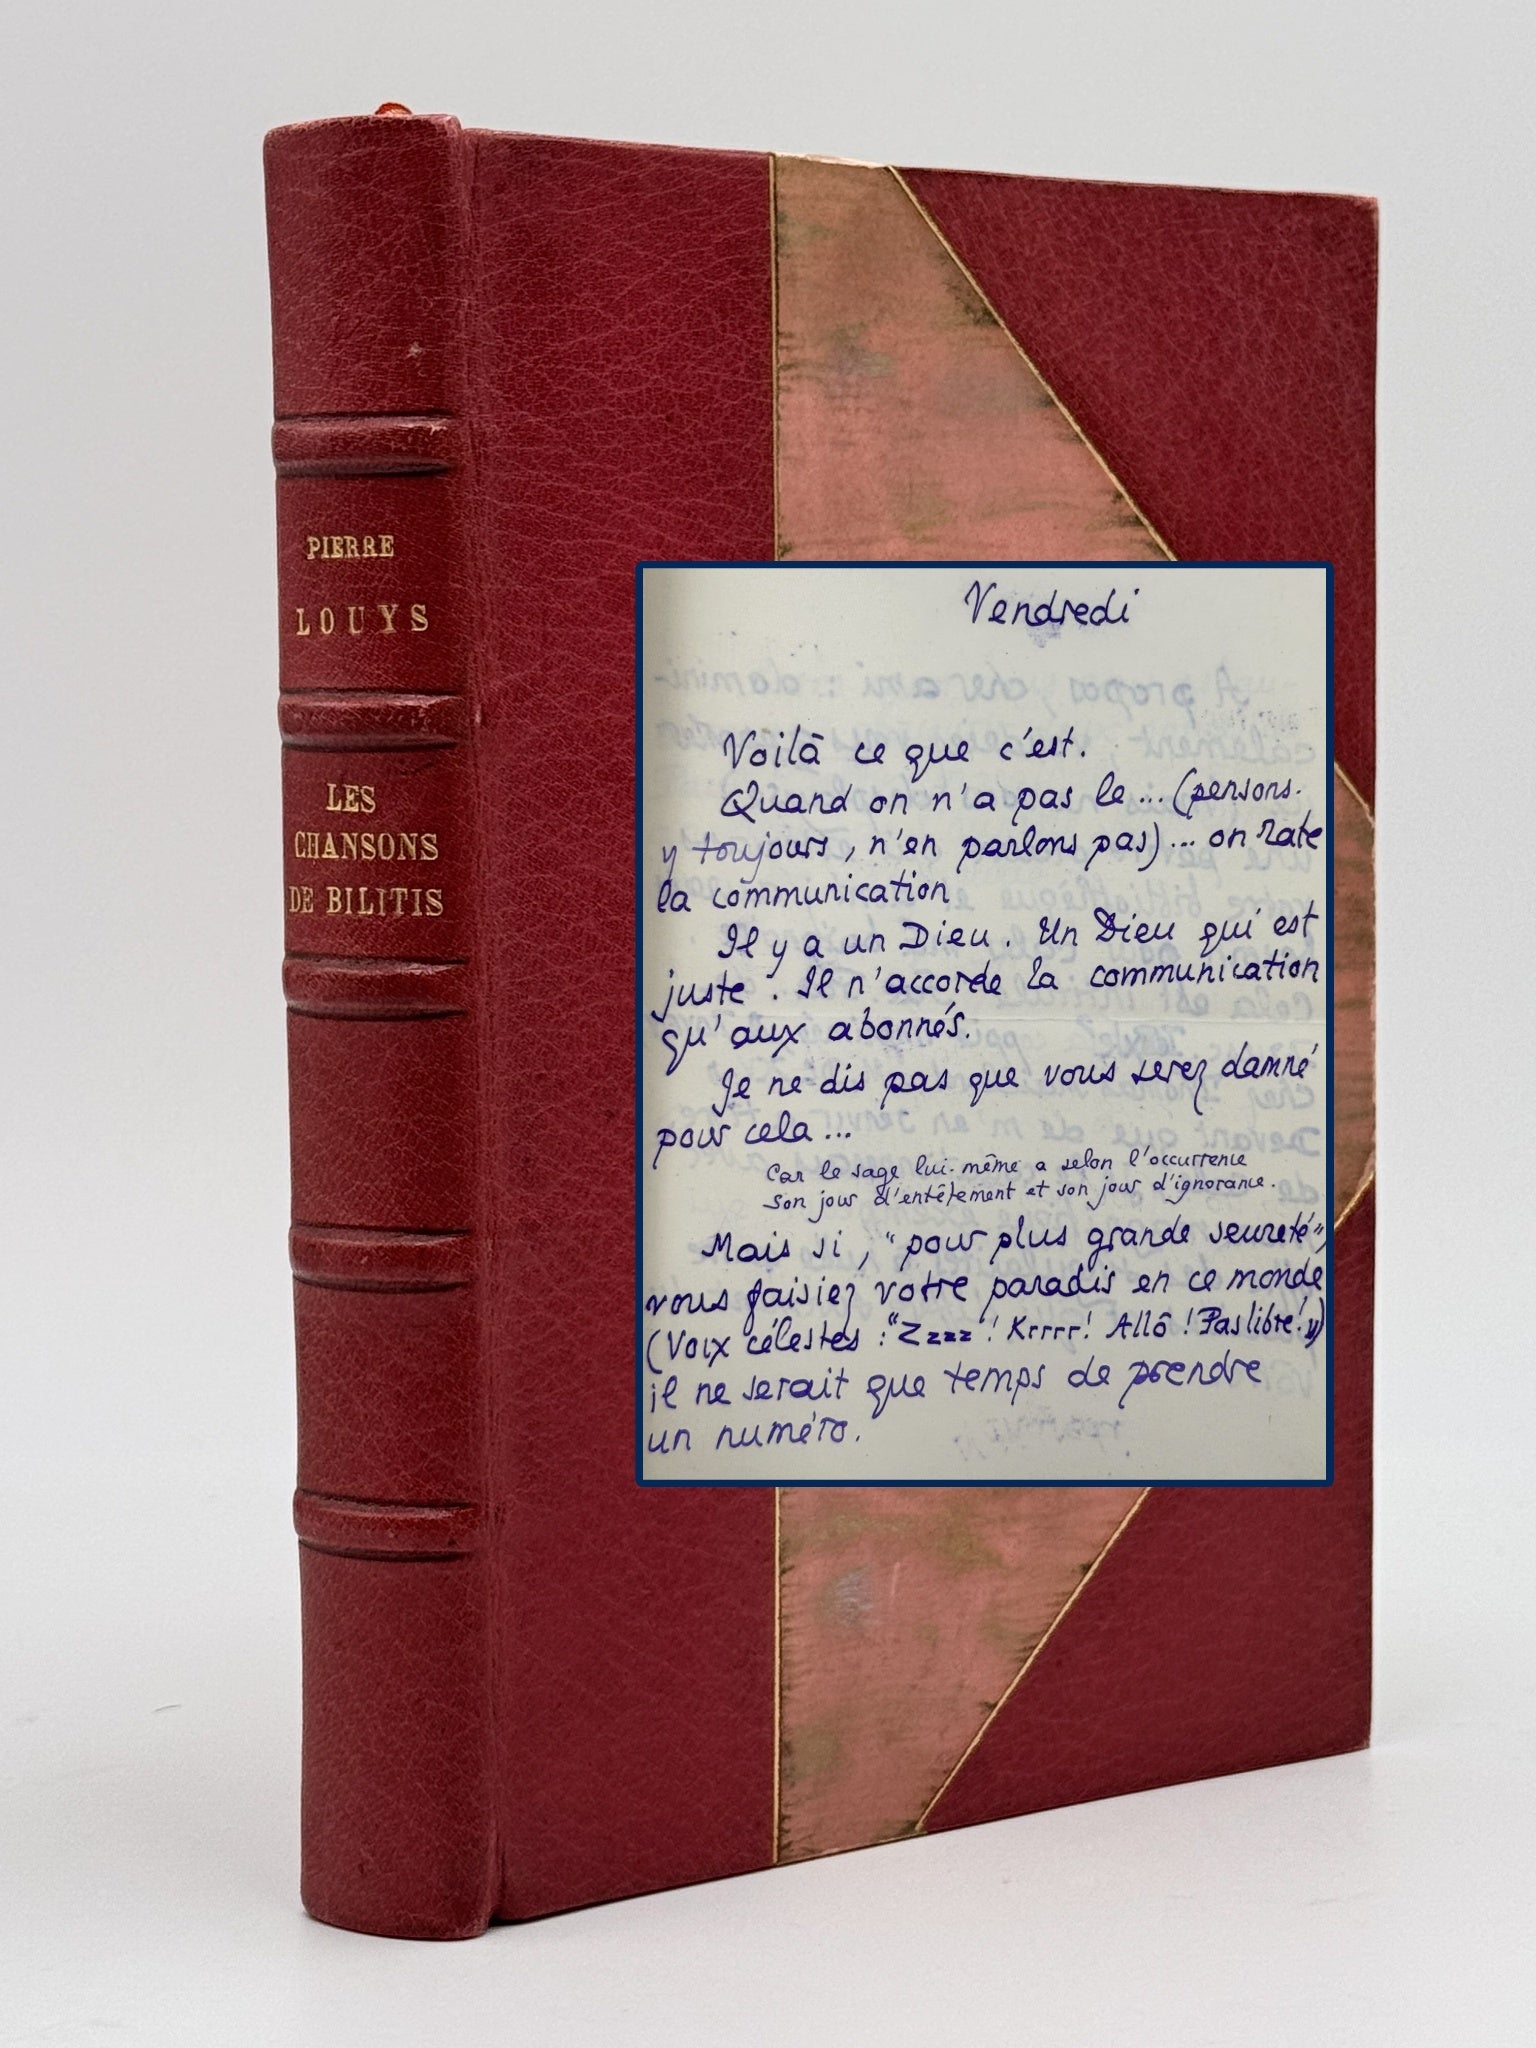 PIERRE
LOUYS
LES
CHANSONS
DE BILITIS
Vendredi
Voilà ce que c'est.
Quand on n'a pas le... (pensons-
y toujours, n'en parlons pas)... on rate
la communication
Il y a un Dieu. Un Dieu qui est
juste. Il n'accorde la communication
qu'aux abonnés.
Je ne dis pas que vous serez damné
pour cela...
Car le sage lui-même a selon l'occurrence
Son jour d'entêtement et son jour d'ignorance.
Mais si, "pour plus grande seureté",
vous faisiez votre paradis en ce monde
(Voix célestes : "Zzzz! Krrrr! Allô! Pas libre!")
il ne serait que temps de prendre
un numéro.